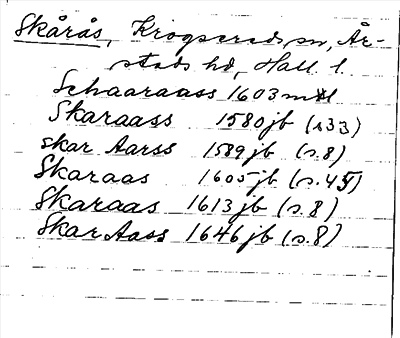 Skårås, Krogsereds sn, År-
stads hd, Hall. l.
Schaaraass 1603 mtl
Skaraass 1580 jb (s 33)
skar Aarss 1589 jb (s. 8)
Skaraas 1605 jb (s. 45)
Skaraas 1613 jb (s. 8)
Skar Aass 1646 jb (s. 8)